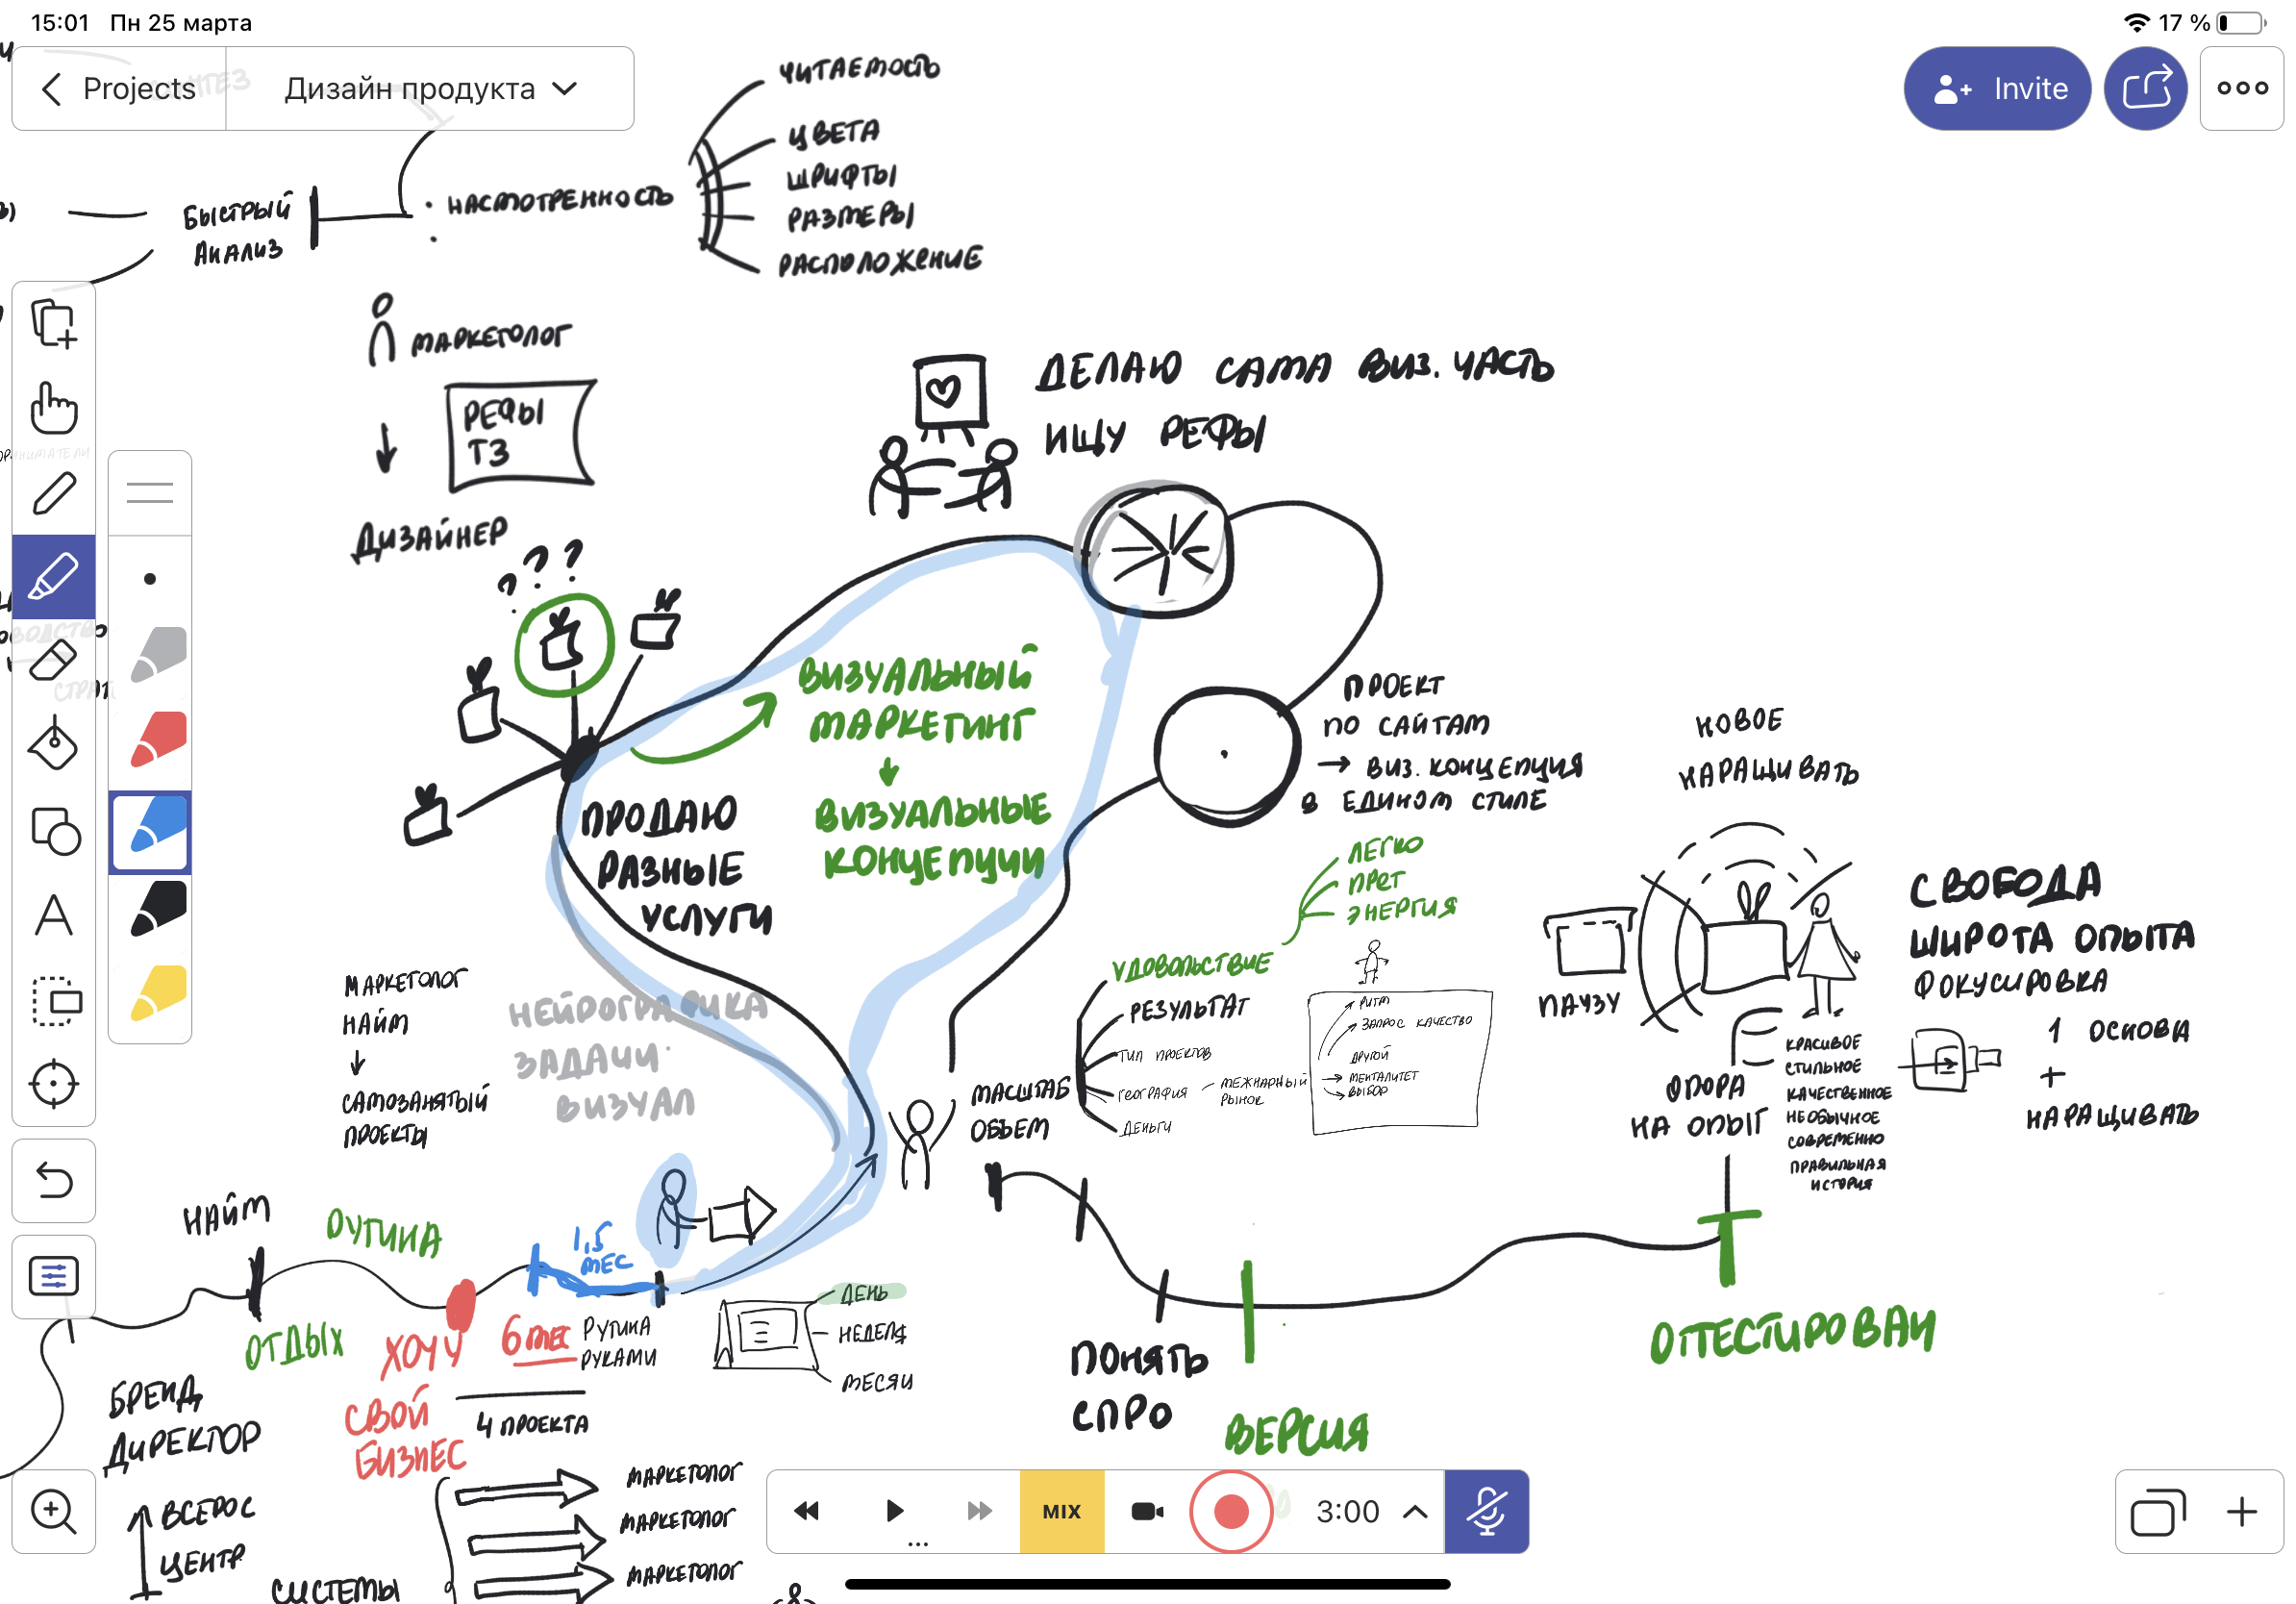 15:01 Пн 25 марта
17 %
Projects
Дизайн продукта
Invite
ЧИТАЕМОСТЬ
ЦВЕТА
ШРИФТЫ
РАЗМЕРЫ
РАСПОЛОЖЕНИЕ
НАСМОТРЕННОСТЬ
БЫСТРЫЙ
АНАЛИЗ
МАРКЕТОЛОГ
РЕФЫ
ТЗ
ДИЗАЙНЕР
???
ДЕЛАЮ САМА ВИЗ. ЧАСТЬ
ИЩУ РЕФЫ
ВИЗУАЛЬНЫЙ
МАРКЕТИНГ
ВИЗУАЛЬНЫЕ
КОНЦЕПЦИИ
ПРОДАЮ
РАЗНЫЕ
УСЛУГИ
ПРОЕКТ
ПО САЙТАМ
→ ВИЗ. КОНЦЕПЦИЯ
В ЕДИНОМ СТИЛЕ
НОВОЕ
НАРАЩИВАТЬ
ЛЕГКО
ПРЕТ
ЭНЕРГИЯ
УДОВОЛЬСТВИЕ
РЕЗУЛЬТАТ
ТИП ПРОЕКТОВ
ГЕОГРАФИЯ – МЕЖНАРНЫЙ
РЫНОК
ДЕНЬГИ
МАСШТАБ
ОБЪЕМ
РИТМ
ЗАПРОС КАЧЕСТВО
ДРУГОЙ
→ МЕНТАЛИТЕТ
ВЫБОР
ПАУЗУ
СВОБОДА
ШИРОТА ОПЫТА
ФОКУСИРОВКА
1 ОСНОВА
+
НАРАЩИВАТЬ
ОПОРА
НА ОПЫТ
КРАСИВОЕ
СТИЛЬНОЕ
КАЧЕСТВЕННОЕ
НЕОБЫЧНОЕ
СОВРЕМЕННО
ПРАВИЛЬНАЯ
ИСТОРИЯ
МАРКЕТОЛОГ
НАЙМ
САМОЗАНЯТЫЙ
ПРОЕКТЫ
НЕЙРОГРАФИКА
ЗАДАЧИ
ВИЗУАЛ
НАЙМ
РУТИНА
1,5
МЕС
ОТДЫХ
ХОЧУ
СВОЙ
БИЗНЕС
6 МЕС
РУТИНА
РУКАМИ
4 ПРОЕКТА
ДЕНЬ
НЕДЕЛЯ
МЕСЯЦ
ПОНЯТЬ
СПРО
ВЕРСИЯ
ОТТЕСТИРОВАЛ
БРЕНД
ДИРЕКТОР
ВСЕРОС
ЦЕНТР
СИСТЕМЫ
МАРКЕТОЛОГ
МАРКЕТОЛОГ
МАРКЕТОЛОГ
MIX
3:00